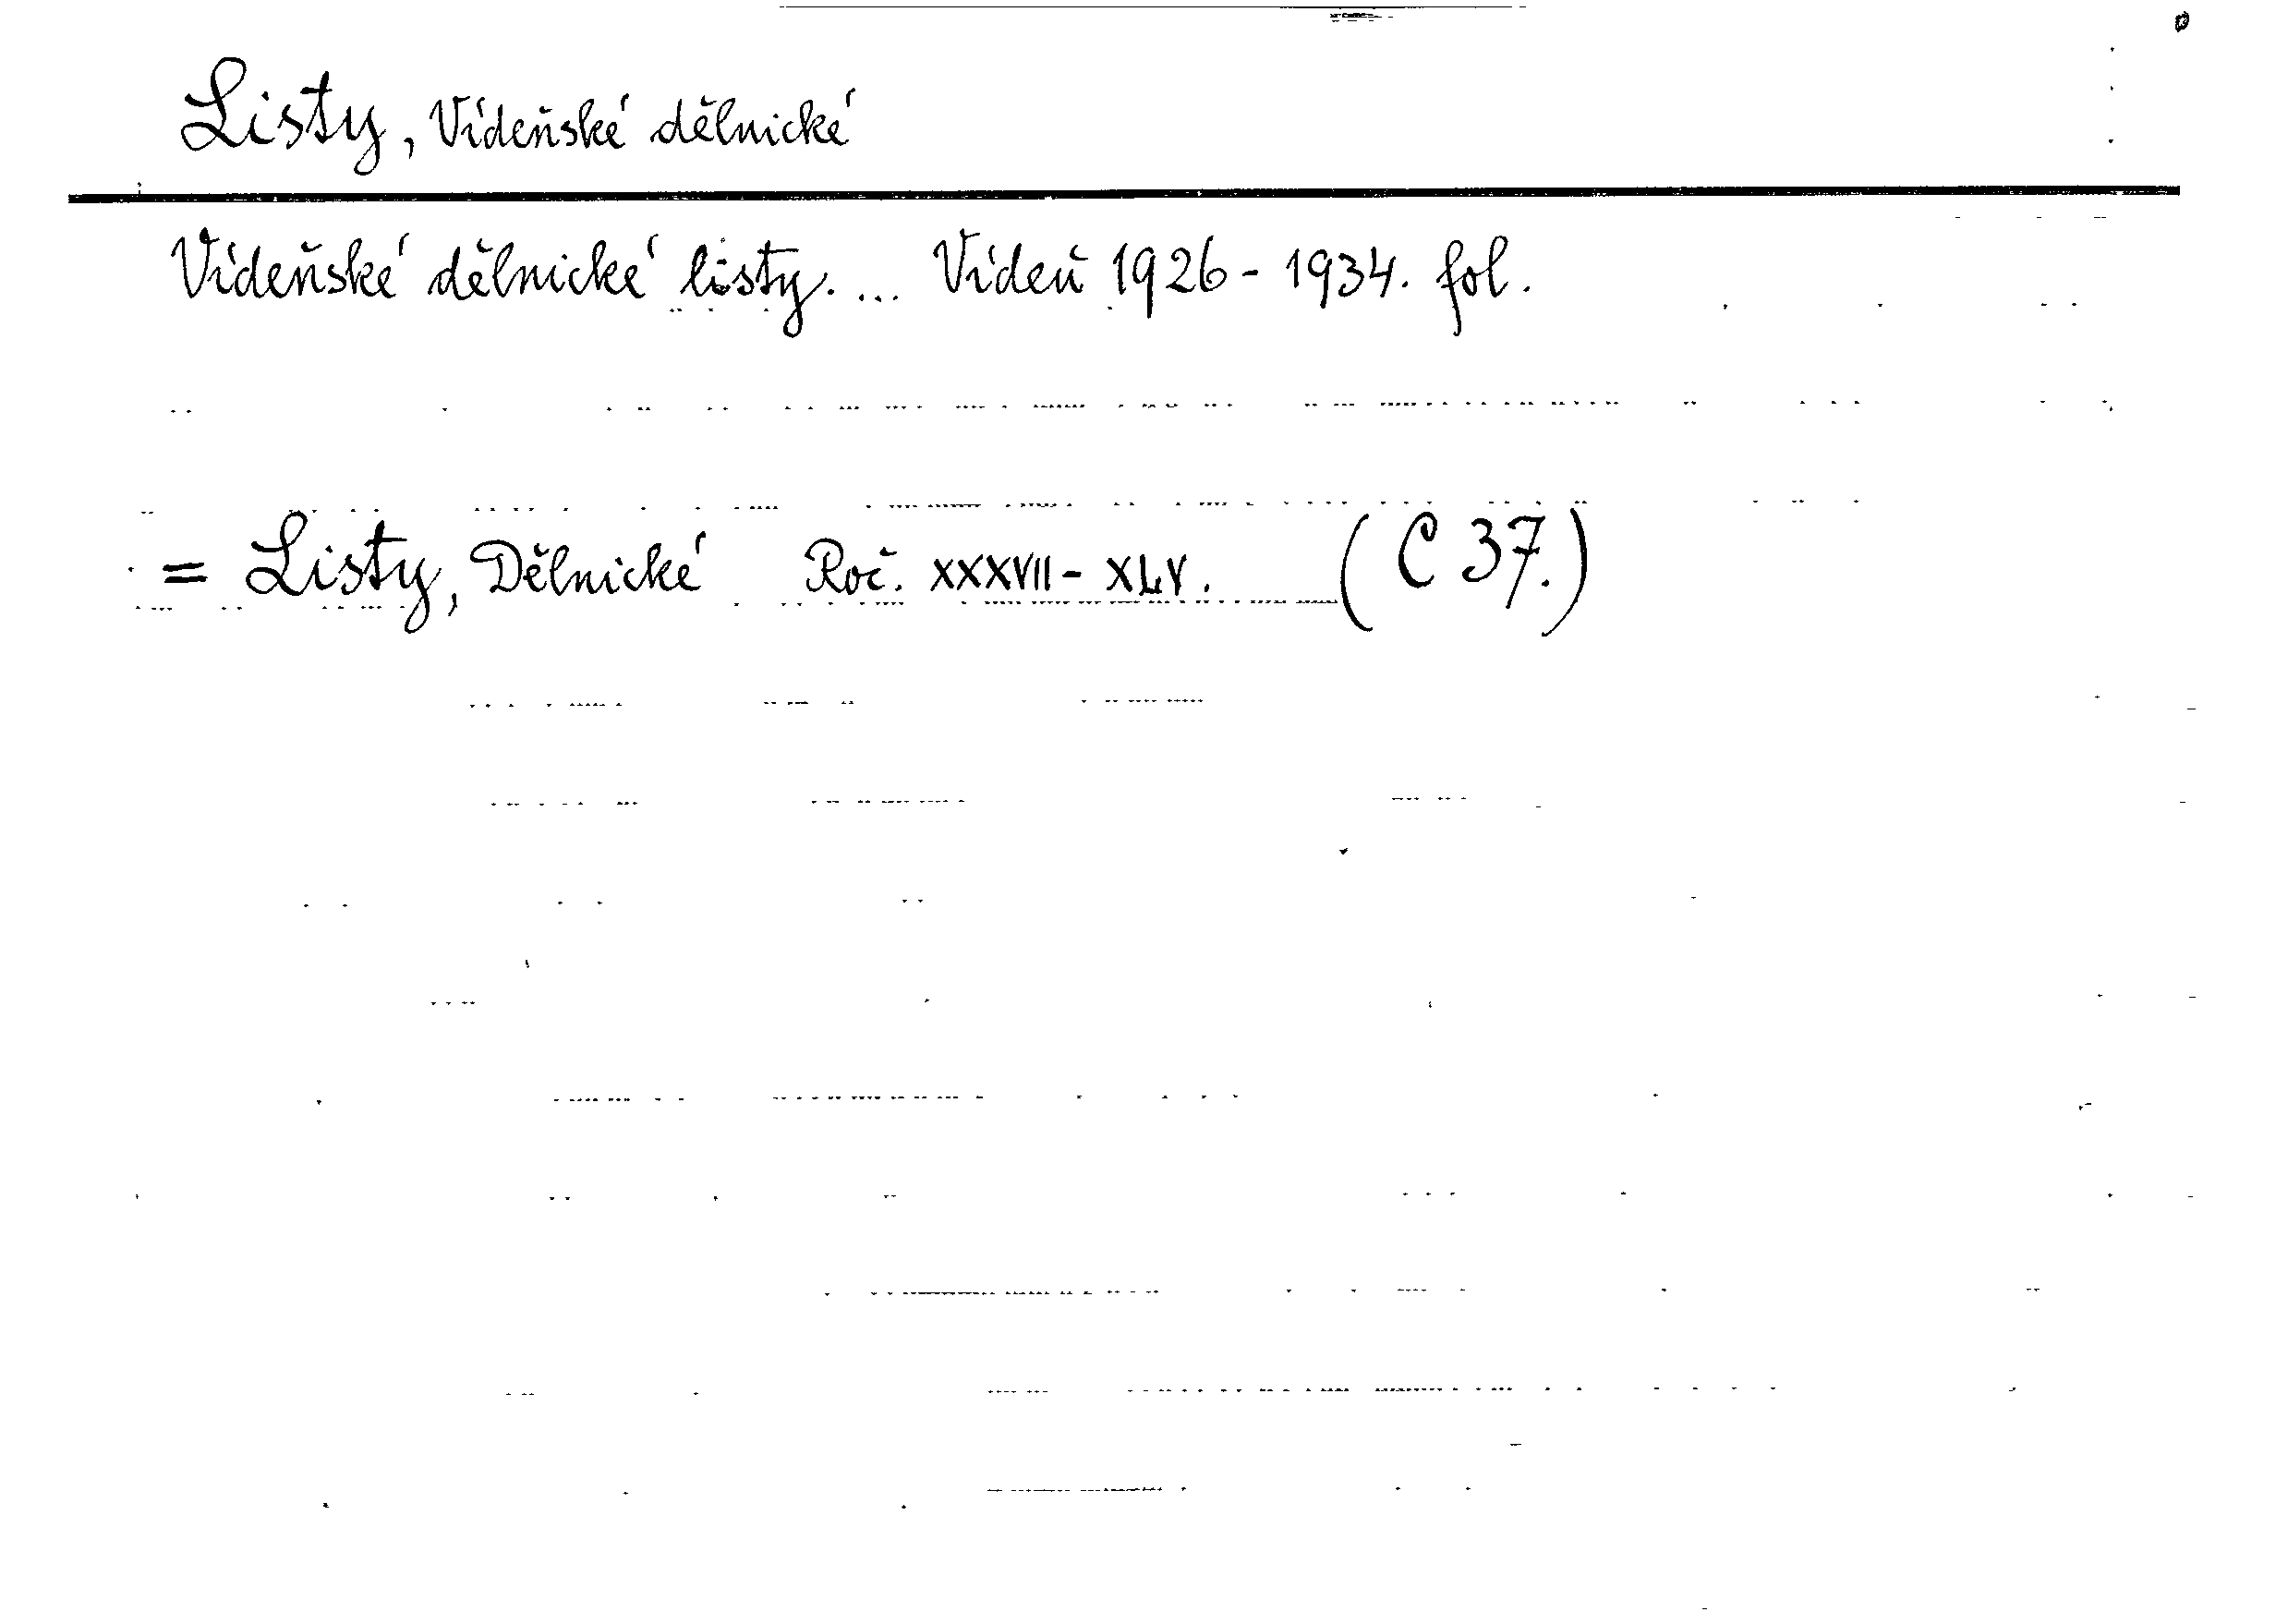 Listy, Vídeňské dělnické
Vídeňské dělnické listy. ... Vídeň 1926 - 1934. fol.
= Listy, Dělnické Roč. XXXVII - XLV. (C 37.)